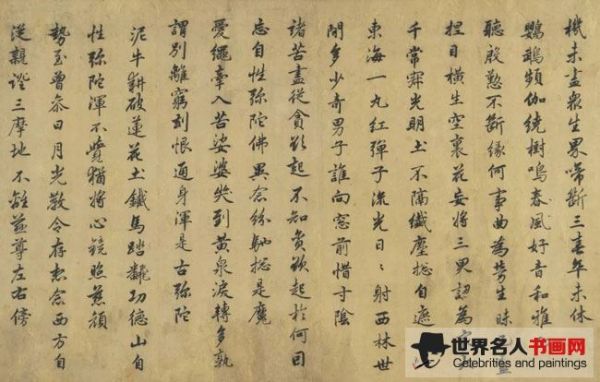 機未盡衆生界啼斷三春年未休
鸚鵡頻伽繞樹鳴春風好音和雅
聽殷懃不斷緣何事曲為勞生昧
捏目橫生空裏花妄將三界認為
千常寂光明土不隔纖塵揔自遮
東海一丸紅彈子流光日日射西林世
間多少奇男子誰向窓前惜寸陰
諸苦盡從貪欲起不知貪欲起於何因
忘自性弥陀佛異念紛馳揔是魔
愛繩牽入苦娑婆哭到黃泉淚轉多孰
謂別離窮刻恨通身渾是古弥陀
泥牛耕破蓮花土鐵馬踏飜功德山自
性弥陀渾不覺猶將心鏡照慈顏
勢至曾參日月光教令存想念西方自
從親證三摩地不離慈尊左右傍
世界名人书画网
Celebrities and paintings